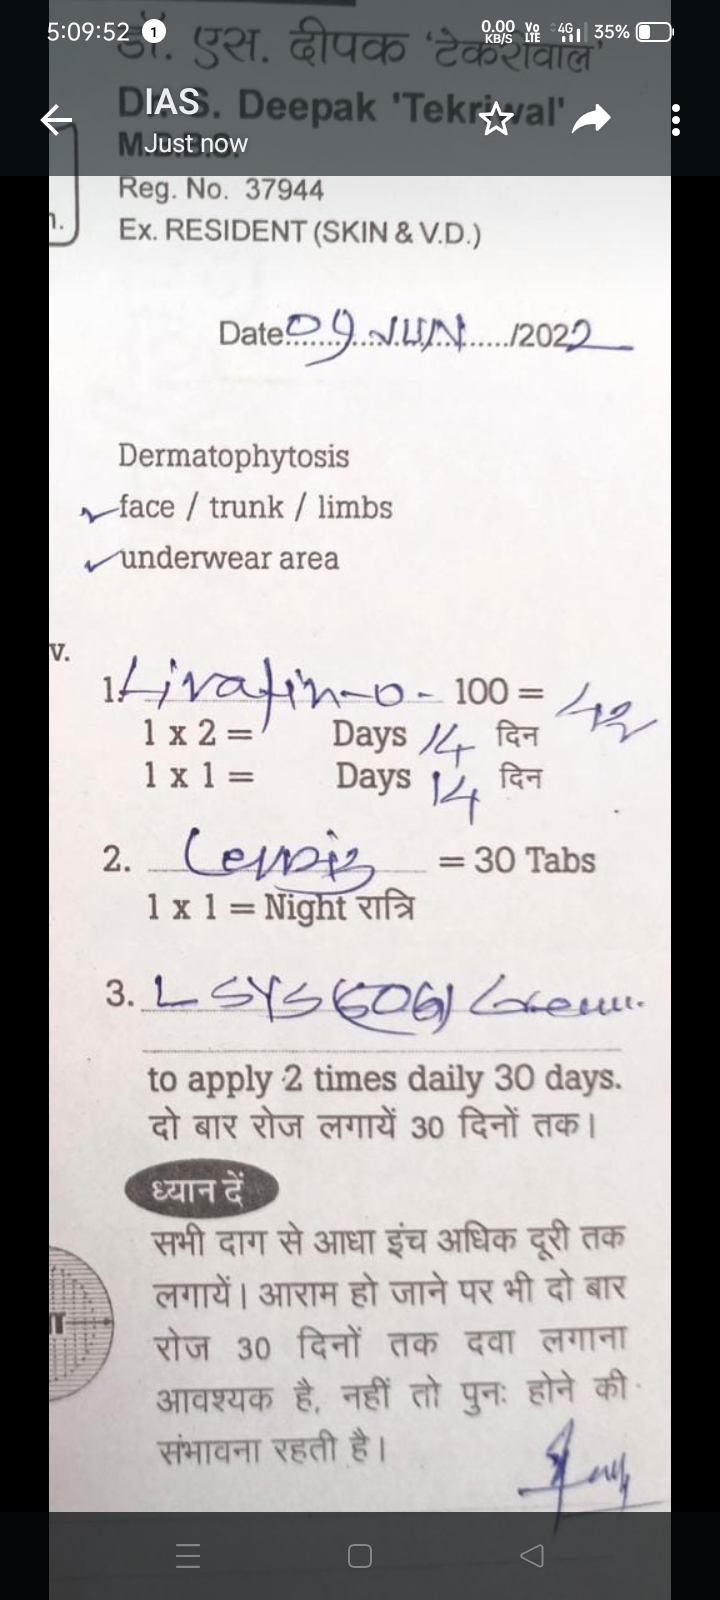 5:09:52 1 0.00 KB/S Vo LTE 4G 35%
डॉ. एस. दीपक ‘टेकरीवाल’
IAS
Dr. S. Deepak 'Tekriwal'
Just now
M.B.B.S.
Reg. No. 37944
Ex. RESIDENT (SKIN & V.D.)
Date 09 JUN /2022
Dermatophytosis
face / trunk / limbs
underwear area
v.
1. - 100 = 42
1 x 2 = Days 14 दिन
1 x 1 = Days 14 दिन
2. = 30 Tabs
1 x 1 = Night रात्रि
3. L SYS Cream
to apply 2 times daily 30 days.
दो बार रोज लगायें 30 दिनों तक।
ध्यान दें
सभी दाग से आधा इंच अधिक दूरी तक
लगायें। आराम हो जाने पर भी दो बार
रोज 30 दिनों तक दवा लगाना
आवश्यक है, नहीं तो पुनः होने की
संभावना रहती है।